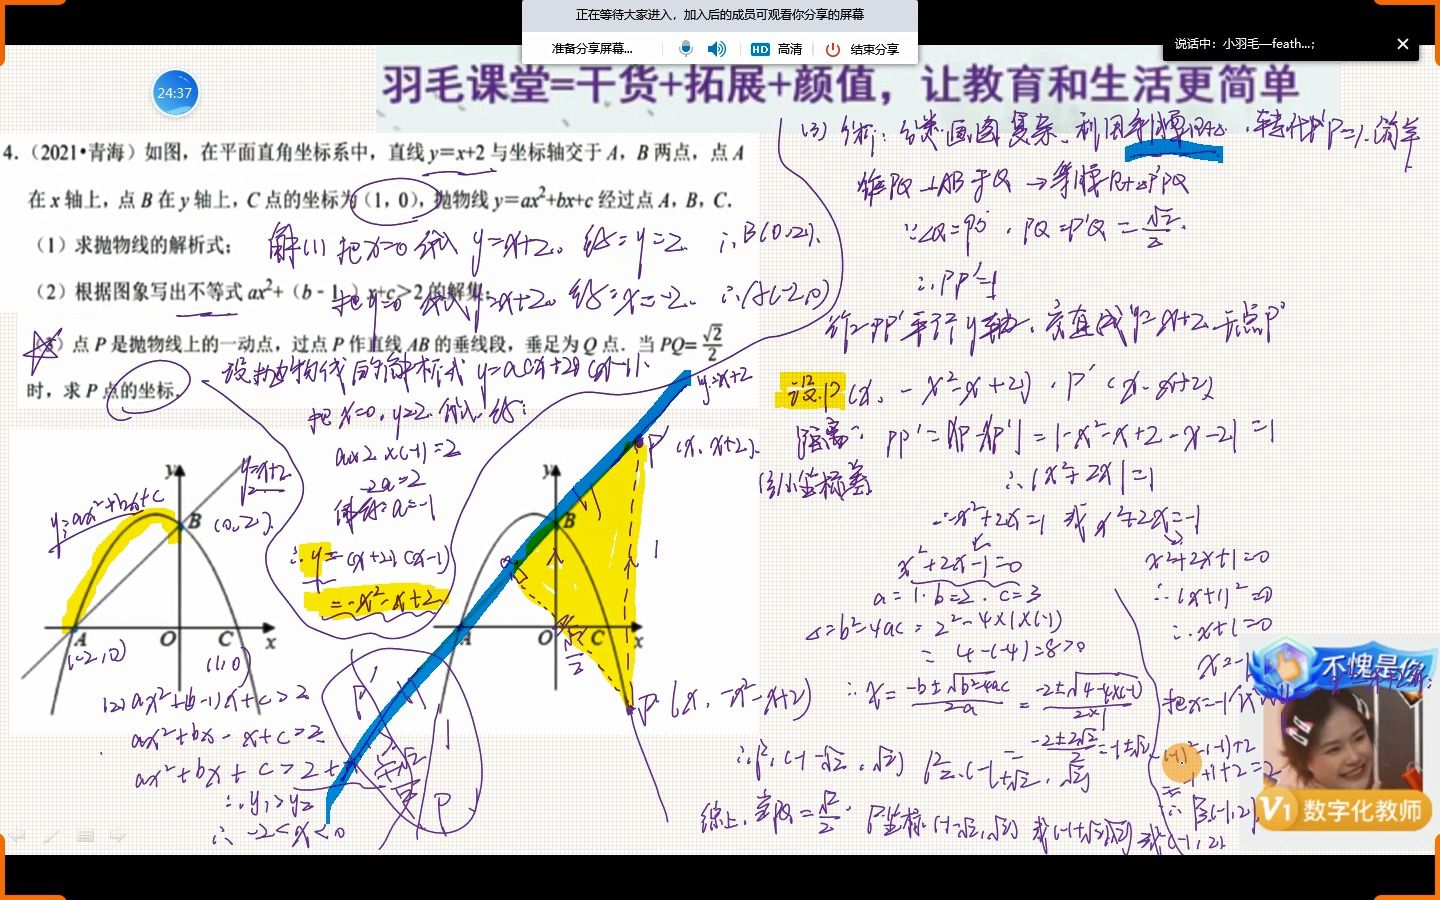 正在等待大家进入，加入后的成员可观看你分享的屏幕
准备分享屏幕... HD 高清 结束分享
说话中：小羽毛—feath...;
24:37
羽毛课堂=干货+拓展+颜值，让教育和生活更简单
4.（2021•青海）如图，在平面直角坐标系中，直线 y=x+2 与坐标轴交于 A，B 两点，点 A
在 x 轴上，点 B 在 y 轴上，C 点的坐标为（1，0），抛物线 y=ax²+bx+c 经过点 A，B，C．
（1）求抛物线的解析式；
（2）根据图象写出不等式 ax²+（b﹣1）x+c＞2 的解集；
点 P 是抛物线上的一动点，过点 P 作直线 AB 的垂线段，垂足为 Q 点．当 PQ=√2/2
时，求 P 点的坐标．
解(1)把x=0代入 y=x+2。 y=2. ∴B(0,2).
把y=0代入y=x+2。 x=-2. ∴A(-2,0)
设抛物线的解析式 y=a(x+2)(x-1).
把x=0，y=2.代入
a×2×(-1)=2
-2a=2
a=-1
∴y=-(x+2)(x-1)
=-x²-x+2
y=ax²+bx+c
y=x+2
y
B (0,2)
A O C x
(-2,0) (1,0)
(2)ax²+(b-1)x+c>2
ax²+bx-x+c>2
ax²+bx+c>2+x
∴y₁>y₂
∴-2<x<0
y=x+2
P' (x, x+2).
y
B
1
A O C x
√2/2
P (x, -x²-x+2)
(3) 分析：分类画图复杂。利用等腰Rt△，转化PP'=1.简单
作PQ⊥AB于Q →等腰Rt△P'PQ
∵∠Q=90°，PQ=P'Q=√2/2.
∴PP'=1
作PP'平行y轴，交直线y=x+2于点P'
设P(x, -x²-x+2)，P'(x, x+2)
距离：PP'=|yP-yP'|=|-x²-x+2-x-2|=1
坐标差 ∴|x²+2x|=1
∴x²+2x=1 或 x²+2x=-1
x²+2x-1=0
a=1.b=2.c=3
△=b²-4ac=2²-4×1×(-1)
=4-(-4)=8>0
∴x=(-b±√(b²-4ac))/2a=(-2±√(4-4×(-1)))/(2×1)
=(-2±2√2)/2=-1±√2
∴P₁(-1-√2,√2) P₂(-1+√2,-√2)
x²+2x+1=0
∴(x+1)²=0
∴x+1=0
x=-1
把x=-1代入
-(-1)²-(-1)+2
=-1+1+2=2
∴P₃(-1,2)
综上，当PQ=√2/2. P坐标(-1-√2,√2)或(-1+√2,-√2)或(-1,2)
不愧是你
V1 数字化教师